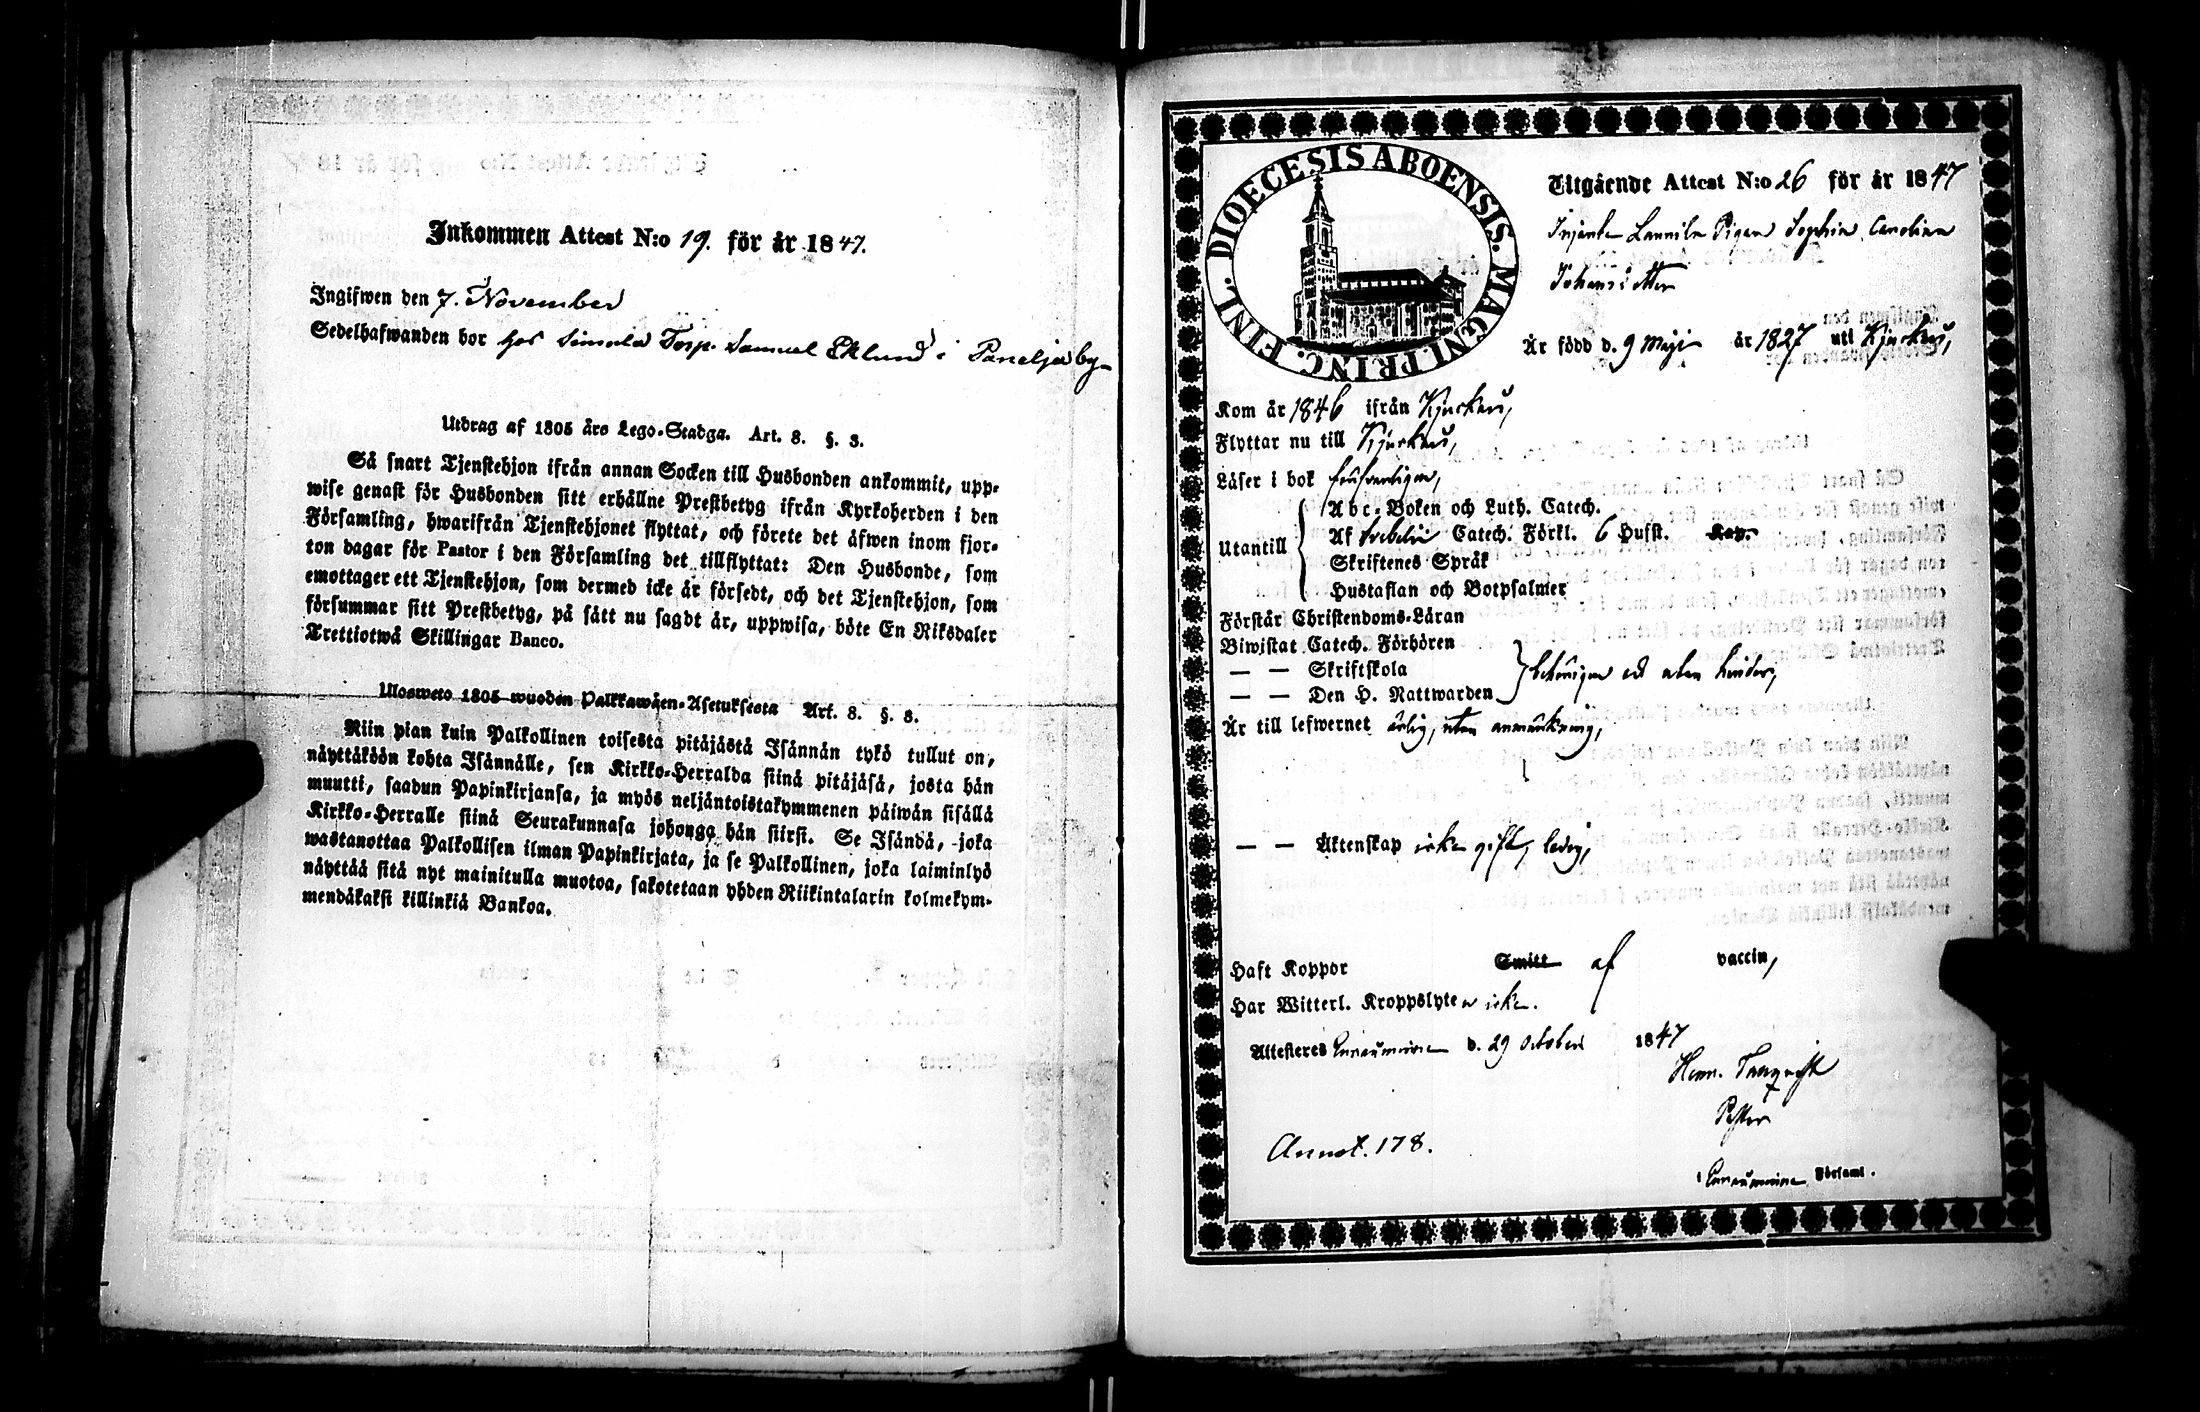 Inkommen Attest N:o 19. för år 1847.
Ingifwen den 7. November
Sedelhafwanden bor hos Simula Torp. Samuel Eklund i Panelja by
Utdrag af 1805 års Lego-Stadga. Art. 8. §. 3.
Så snart Tjenstehjon ifrån annan Socken till Husbonden ankommit, upp-
wise genast för Husbonden sitt erhållne Prestbetyg ifrån Kyrkoherden i den
Församling, hwarifrån Tjenstehjonet flyttat, och förete det äfwen inom fjor-
ton dagar för Pastor i den Församling det tillflyttat: Den Husbonde, som
emottager ett Tjenstehjon, som dermed icke är försedt, och det Tjenstehjon, som
försummar sitt Prestbetyg, på sätt nu sagdt är, uppwisa, böte En Riksdaler
Trettiotwå Skillingar Banco.
Ulosweto 1805 wuoden Palkkawäen-Asetuksesta Art. 8. §. 3.
Niin pian kuin Palkollinen toisesta pitäjästä Isännän tykö tullut on,
näyttäköön kohta Isännälle, sen Kirkko-Herralda siinä pitäjäsä, josta hän
muutti, saadun Papinkirjansa, ja myös neljäntoistakymmenen päiwän sisällä
Kirkko-Herralle siinä Seurakunnasa johonga hän siirsi. Se Isändä, joka
wastanottaa Palkollisen ilman Papinkirjata, ja se Palkollinen, joka laiminlyö
näyttää sitä nyt mainitulla muotoa, sakotetaan yhden Riikintalarin kolmekym-
mendäkaksi killinkiä Bankoa.
DIOECESIS ABOENSIS. MAGNI PRINC. FINL.
Utgående Attest N:o 26 för år 1847
Pigan Sophia Carolina
Johansdotter
Är född d. 9 Maji år 1827 uti Kjurkais,
Kom år 1846 ifrån Kjurkais,
Flyttar nu till Kjurkais,
Läser i bok
Utantill
Abc-Boken och Luth. Catech.
Af Svebelii Catech. Förkl. 6 Hufst. Kap.
Skriftenes Språk
Hustaflan och Botpsalmer
Förstår Christendoms-Läran
Biwistat Catech. Förhören
— — Skriftskola
— — Den H. Nattwarden
behörigen och utan hinder,
Är till lefwernet ärlig, utan anmärkning,
— — Äktenskap icke gift, ledig,
Haft Koppor Smitt af vaccin,
Har Witterl. Kroppslyte icke.
Attesteres Punaumine d. 29 October 1847
Henr.
Pastor
Annot. 178.
i Församl.